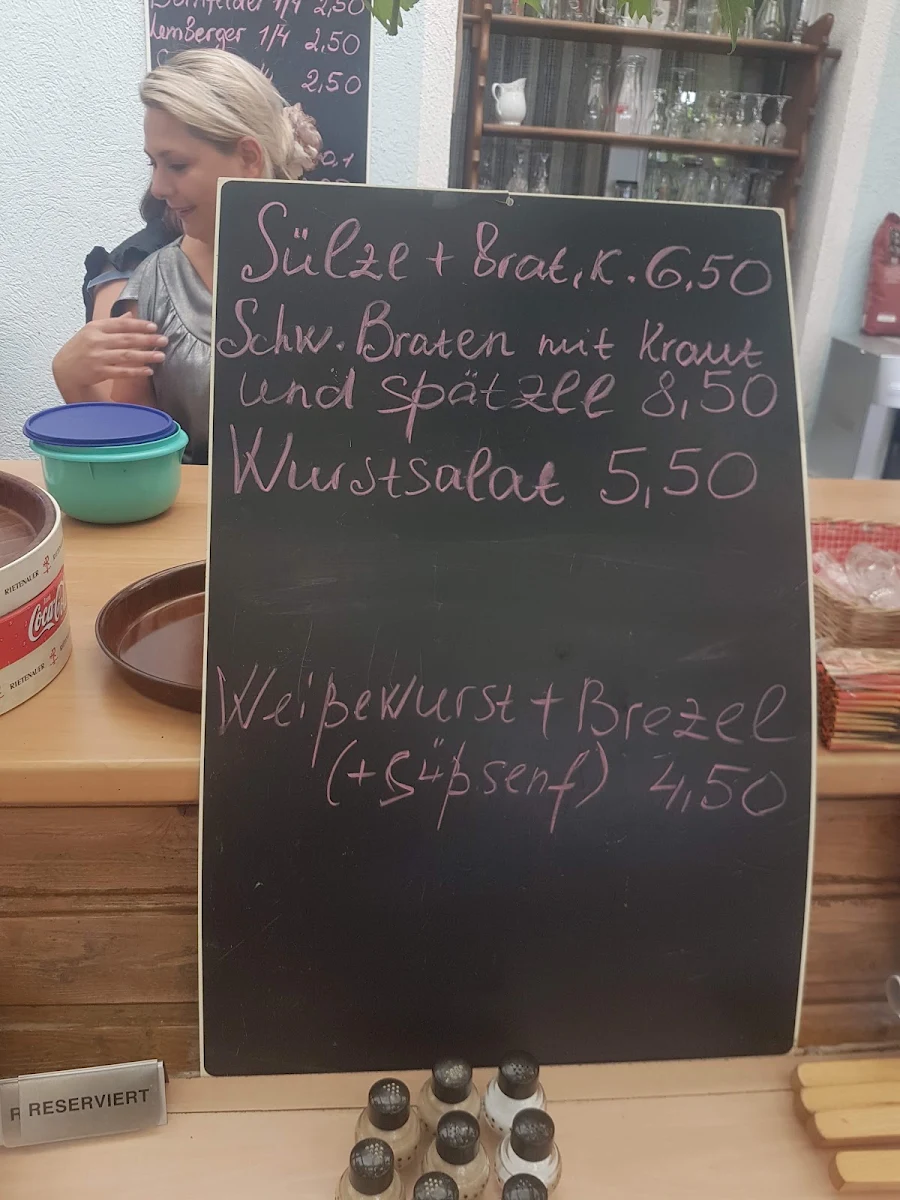 Dornfelder 1/4 2,50
Lemberger 1/4 2,50
2,50
0,1
Sülze + Brat.K. 6,50
Schw. Braten mit Kraut
und Spätzle 8,50
Wurstsalat 5,50
Weißewurst + Brezel
(+Süßsenf) 4,50
RIETENAUER
Coca
RIETENAUER
RESERVIERT